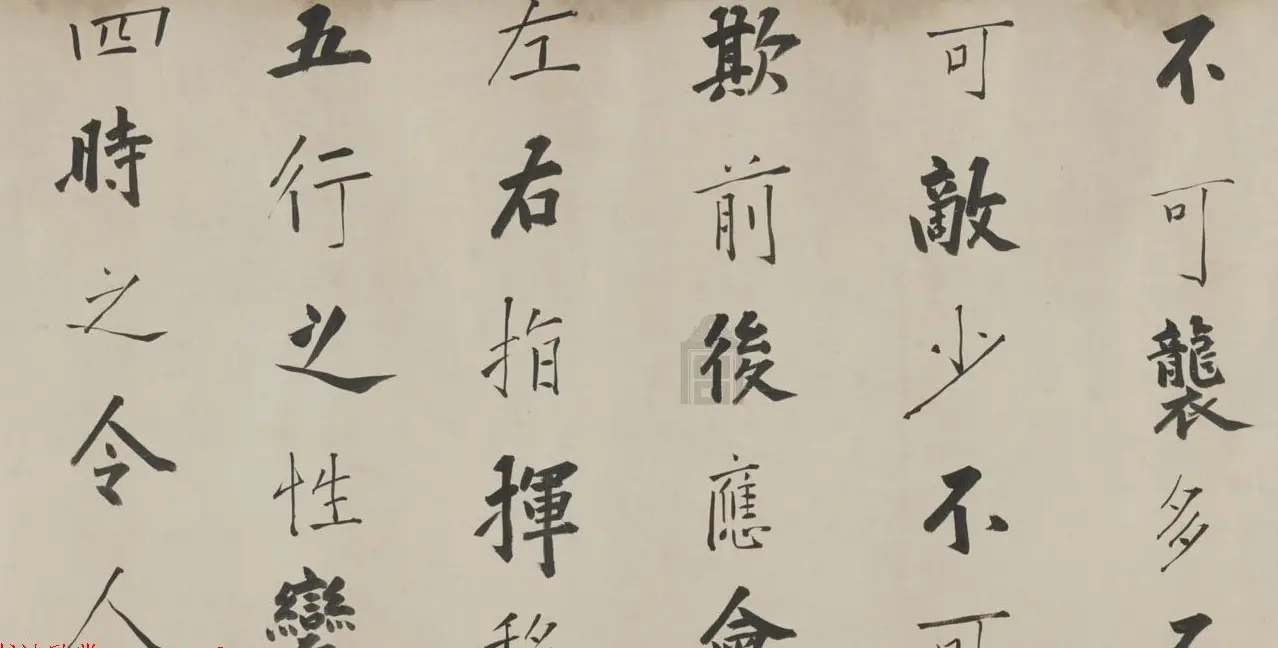 不可襲多不
可敵少不可
欺前後應會
左右指揮移
五行之性變
四時之令人